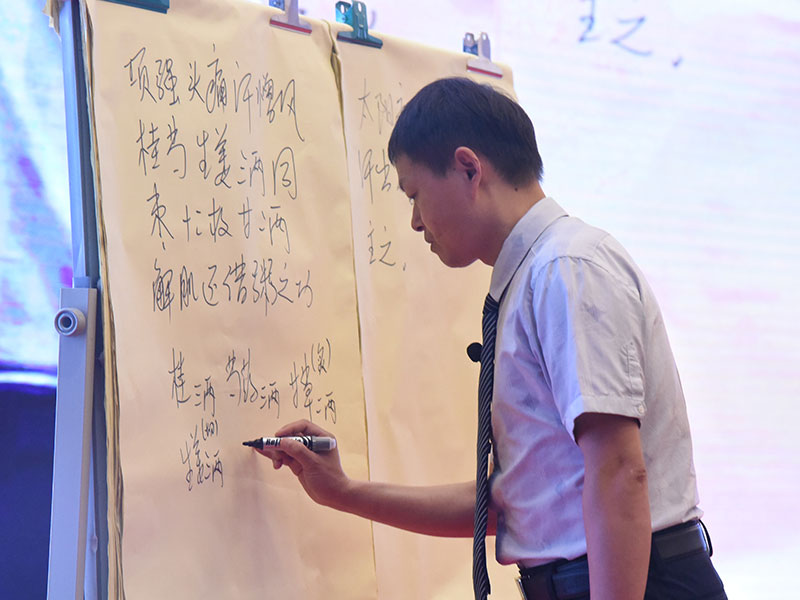 主之.
项强头痛汗憎风
桂芍生姜三两同
枣十二枚甘二两
解肌还借粥之功
桂三两 芍药三两 甘草(炙)二两
生姜(切)三两
太阳
汗出
主之.